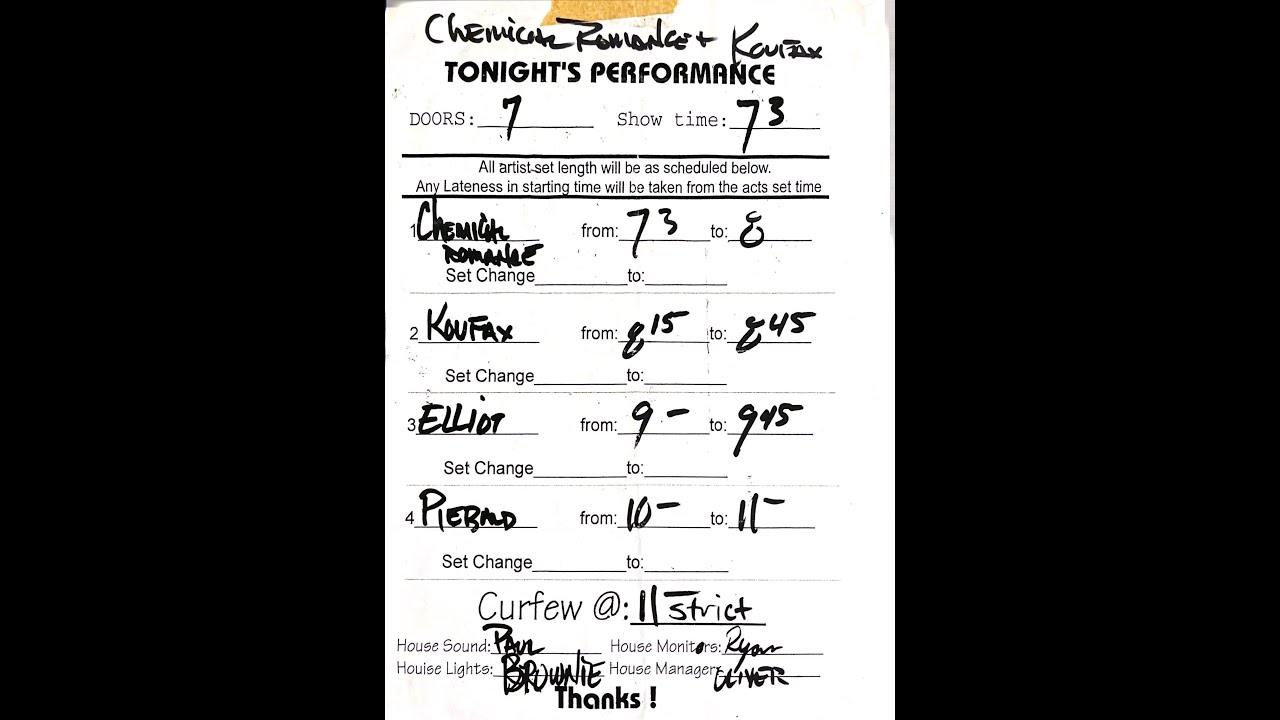 Chemical Romance + Koufax
TONIGHT'S PERFORMANCE
DOORS: 7 Show time: 73
All artist set length will be as scheduled below.
Any Lateness in starting time will be taken from the acts set time
1 Chemical from: 73 to: 8
Romance
Set Change to:
2 Koufax from: 815 to: 845
Set Change to:
3 Elliot from: 9 - to: 945
Set Change to:
4 Piebald from: 10 - to: 11 -
Set Change to:
Curfew @: 11 Strict
House Sound: Paul House Monitors: Ryan
Houise Lights: Brownie House Manager: Oliver
Thanks !